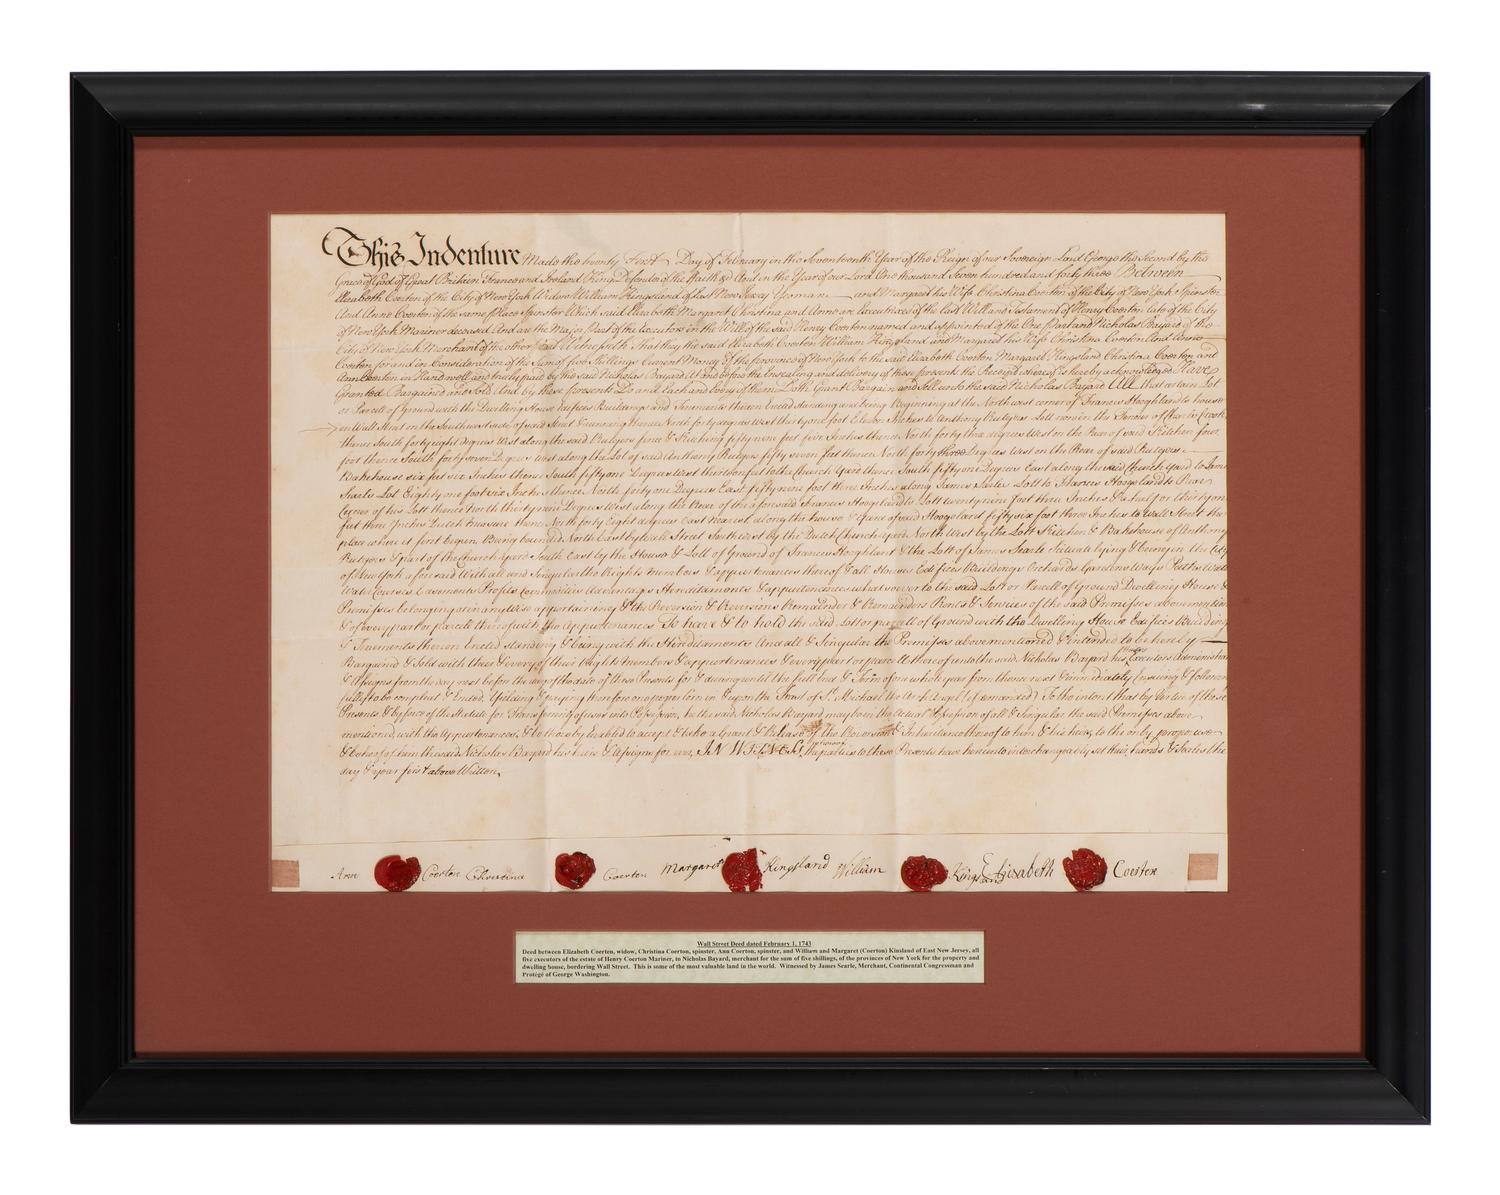 This Indenture Made the twenty First Day of February in the Seventeenth Year of the Reign of our Sovereign Lord George the Second by the
Grace of God of Great Brittain France and Ireland King Defender of the Faith &c And in the Year of our Lord One thousand Seven hundred and forty three Between
Elizabeth Coerten of the City of New York Widow William Kingsland of East New Jersey Yeoman and Margaret his Wife Christina Coerten of the City of New York Spinster
And Anne Coerten of the same place Spinster Which said Elizabeth Margaret Christina and Anne are Executrixes of the last Will and Testament of Henry Coerten late of the City
of New York Mariner deceased And are the Major Part of the Executors in the Will of the said Henry Coerten named and appointed of the One Part and Nicholas Bayard of the
City of New York Merchant of the other Part Witnesseth That they the said Elizabeth Coerten William Kingsland and Margaret his Wife Christina Coerten And Anne
Coerten for and in Consideration of the Sum of five Shillings Current Money of the province of New York to the said Elizabeth Coerten Margaret Kingsland Christina Coerten and
Ann Coerten in Hand well and truly paid by the said Nicholas Bayard At and before the Ensealing and delivery of these presents the Receipt whereof is hereby acknowledged Have
Granted Bargained and Sold And by these presents Do and Each and every of them Doth Grant Bargain and Sell unto the said Nicholas Bayard All that certain Lot
or Parcell of Ground with the Dwelling House Edifices Buildings and Tenements thereon Erected standing and being Beginning at the North west corner of Francis Hooghlandts house
in Wall Street on the Southwest side of said Street & running thence North forty degrees West thirty one foot Eleven Inches to Anthony Rutgers Lott now in the Tenure of Charles
thence South forty eight degrees West along the said Rutgers fence & Kitching fifty nine feet five Inches thence North forty three degrees West on the Rear of said Kitchen four
foot thence South forty seven Degrees West along the Lot of said Anthony Rutgers fifty seven feet thence North forty three Degrees West on the Rear of said Rutgers
Bakehouse six feet six Inches thence South fifty one Degrees West thirteen foot to the Church Yard thence South fifty one Degrees East along the said Church Yard to James
Searles Lot Eighty one foot six Inches thence North forty one Degrees East fifty nine foot three Inches along James Searles Lott to Francis Hooglandts Rear
Corner of his Lott thence North thirty nine Degrees West along the Rear of the aforesaid Francis Hooglandts Lott twenty nine foot three Inches & a half or thirty one
feet three Inches Dutch Measure thence North forty Eight degrees East along the house & fence of said Hoogeland fifty six foot three Inches to Wall Street the
place where it first begun Being bounded North East by Wall Street South West by the Dutch Church Yard North West by the Lott Kitchen & Bakehouse of Anthony
Rutgers & part of the Church Yard South East by the House & Lott of Ground of Francis Hooghland & the Lott of James Searle Situate lying & being in the City
of New York aforesaid With all and Singular the Rights Members & appurtenances thereof & all Houses Edifices Buildings Orchards Gardens Ways Paths Wells
Water Courses Easments Profits Commodities Advantages Hereditaments & appurtenances whatsoever to the said Lott or Parcell of Ground Dwelling House &
Premises belonging or in any wise appertaining & the Reversion & Reversions Remainder & Remainders Rents & Services of the said Premises abovementioned
& of every part or parcell thereof with the Appurtenances To have & to hold the said Lott or parcell of Ground with the Dwelling House Edifices Building
& Tenements thereon Erected standing & being with the Hereditaments And all & Singular the Premises abovementioned & intended to be hereby
Bargained & Sold with their & every of their Rights members & appurtenances & every part or parcell thereof unto the said Nicholas Bayard his Executors Administrators
& Assigns from the day next before the day of the date of these Presents for & during until the full End & Term of one whole year from thence next & immediately Ensuing & following
fully to be compleat & Ended, Yielding & paying therefore one pepper Corn in & upon the Feast of St Michael the Arch Angel (if demanded) To the intent that by Virtue of these
Presents & by force of the Statute for Transferring of uses into Possession, he the said Nicholas Bayard may be in the Actual Possession of all & Singular the said Premises above
mentioned with the Appurtenances & be thereby Enabled to accept & take a Grant & Release of the Reversion & Inheritance thereof to him & his heirs to the only proper use
& behoof of him the said Nicholas Bayard his heirs & Assigns for ever, IN WITNESS the parties to these Presents have hereunto interchangeably set their hands & Seales the
day & year first above Written
Ann Coerten Christina Coerten Margaret Kingsland William Kingsland Elisabeth Coerten
Wall Street Deed dated February 1, 1743
Deed between Elizabeth Coerten, widow, Christina Coerton, spinster, Ann Coerton, spinster, and William and Margaret (Coerton) Kinsland of East New Jersey, all
five executors of the estate of Henry Coerton Mariner, to Nicholas Bayard, merchant for the sum of five shillings, of the provinces of New York for the property and
dwelling house, bordering Wall Street. This is some of the most valuable land in the world. Witnessed by James Searle, Merchant, Continental Congressman and
Protégé of George Washington.